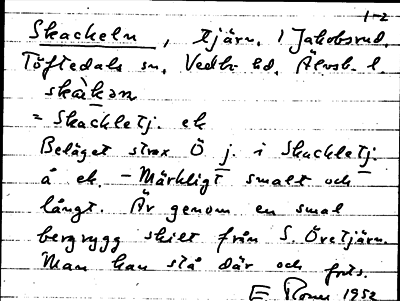 1-2
Skackeln, tjärn, i Jakobsrud,
Töftedals sn, Vedbo hd, Älvsb. l.
skàkan
= Skackletj. ek
Beläget strax Ö j. i Skackletj.
å ek. - Märkligt smalt och
långt. Är genom en smal
bergrygg skilt från S. Övetjärn.
Man kan stå där och forts.
E 1952